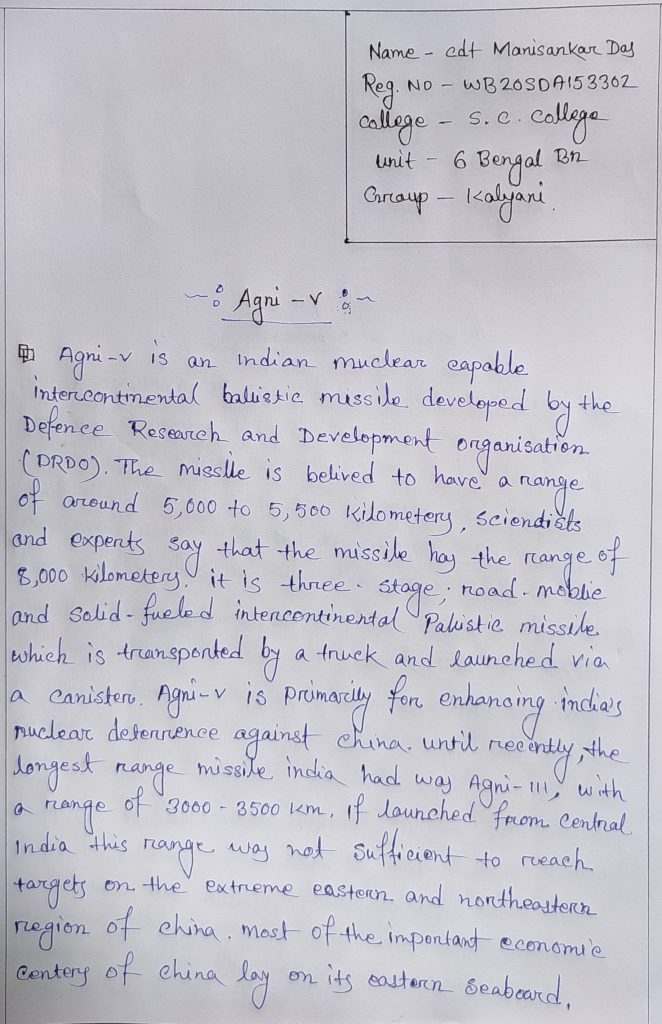 Name - cdt Manisankar Das
Reg. NO - WB20SDA153302
College - S. C. College
Unit - 6 Bengal Bn
Group - Kalyani
Agni - V
Agni-v is an indian nuclear capable
intercontinental ballistic missile developed by the
Defence Research and Development organisation
(DRDO). The missile is belived to have a range
of around 5,000 to 5,500 kilometers, Sciendists
and experts say that the missile has the range of
8,000 kilometers. it is three-stage; road-moblie
and solid-fueled intercontinental Palistic missile
which is transported by a truck and launched via
a canister. Agni-v is primarily for enhancing india's
nuclear deterrence against china. until recently, the
longest range missile india had was Agni-III, with
a range of 3000 - 3500 km. if launched from central
India this range was not sufficient to reach
targets on the extreme eastern and northeastern
region of china. most of the important economic
centers of china lay on its eastern seaboard.